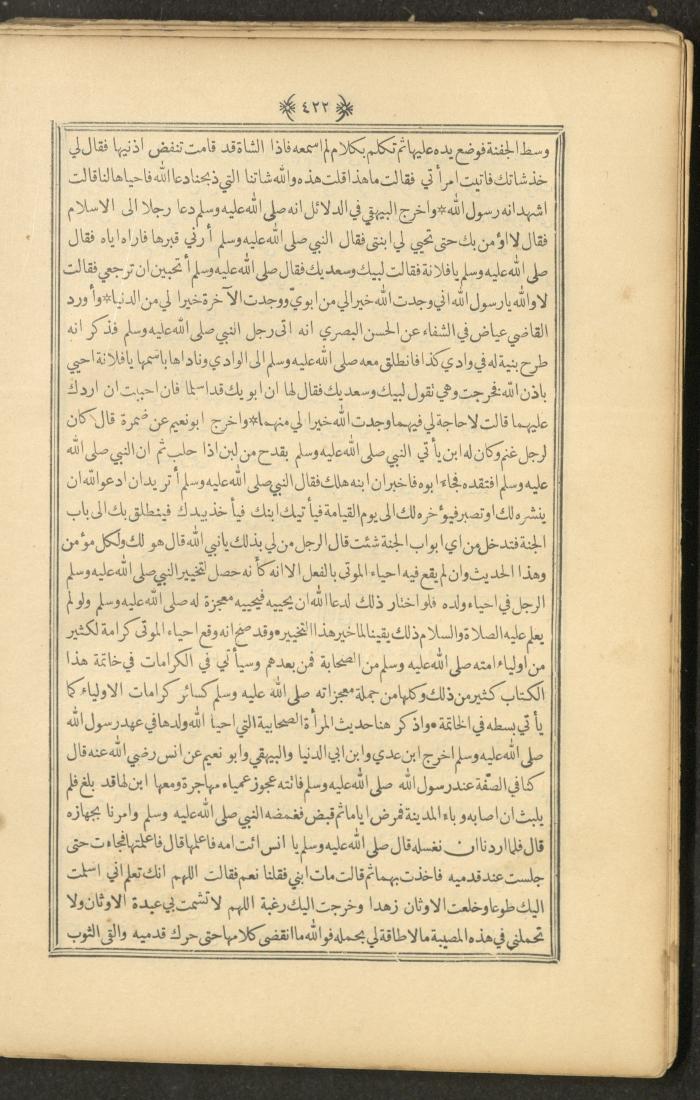 ٤٢٢
وسط الجفنة فوضع يده عليها ثم تكلم بكلام لم اسمعه فاذا الشاة قد قامت تنفض اذنيها فقال لي
خذ شاتك فاتيت امرأتي فقالت ما هذا قلت هذه والله شاتنا التي ذبحنا دعا الله فاحياها لنا قالت
اشهد انه رسول الله * واخرج البيهقي في الدلائل انه صلى الله عليه وسلم دعا رجلا الى الاسلام
فقال لا اؤمن بك حتى تحيي لي ابنتي فقال النبي صلى الله عليه وسلم أرني قبرها فاراه اياه فقال
صلى الله عليه وسلم يا فلانة فقالت لبيك وسعديك فقال صلى الله عليه وسلم أتحبين ان ترجعي فقالت
لا والله يا رسول الله اني وجدت الله خيرا لي من ابويّ ووجدت الآخرة خيرا لي من الدنيا * وأورد
القاضي عياض في الشفاء عن الحسن البصري انه اتى رجل النبي صلى الله عليه وسلم فذكر انه
طرح بنية له في وادي كذا فانطلق معه صلى الله عليه وسلم الى الوادي وناداها باسمها يا فلانة احيي
باذن الله فخرجت وهي تقول لبيك وسعديك فقال لها ان ابويك قد اسلما فان احببت ان اردك
عليهما قالت لا حاجة لي فيهما وجدت الله خيرا لي منهما * واخرج ابو نعيم عن ضمرة قال كان
لرجل غنم وكان له ابن يأتي النبي صلى الله عليه وسلم بقدح من لبن اذا حلب ثم ان النبي صلى الله
عليه وسلم افتقده فجاء ابوه فاخبر ان ابنه هلك فقال النبي صلى الله عليه وسلم أتريد ان ادعو الله ان
ينشره لك او تصبر فيؤخره لك الى يوم القيامة فيأتيك ابنك فيأخذ بيدك فينطلق بك الى باب
الجنة فتدخل من اي ابواب الجنة شئت قال الرجل من لي بذلك يا نبي الله قال هو لك ولكل مؤمن
وهذا الحديث وان لم يقع فيه احياء الموتى بالفعل الا انه كأنه حصل لتخيير النبي صلى الله عليه وسلم
الرجل في احياء ولده فلو اختار ذلك لدعا الله ان يحييه فيحييه معجزة له صلى الله عليه وسلم ولو لم
يعلم عليه الصلاة والسلام ذلك يقينا لما خير هذا التخيير * وقد صح انه وقع احياء الموتى كرامة لكثير
من اولياء امته صلى الله عليه وسلم من الصحابة فمن بعدهم وسيأتي في الكرامات في خاتمة هذا
الكتاب كثير من ذلك وكلها من جملة معجزاته صلى الله عليه وسلم كسائر كرامات الاولياء كما
يأتي بسطه في الخاتمة * واذكر هنا حديث المرأة الصحابية التي احيا الله ولدها في عهد رسول الله
صلى الله عليه وسلم اخرج ابن عدي وابن ابي الدنيا والبيهقي وابو نعيم عن انس رضي الله عنه قال
كنا في الصّفة عند رسول الله صلى الله عليه وسلم فاتته عجوز عمياء مهاجرة ومعها ابن لها قد بلغ فلم
يلبث ان اصابه وباء المدينة فمرض اياما ثم قبض فغمضه النبي صلى الله عليه وسلم وامرنا بجهازه
قال فلما اردنا ان نغسله قال صلى الله عليه وسلم يا انس ائت امه فاعلمها قال فاعلمتها فجاءت حتى
جلست عند قدميه فاخذت بهما ثم قالت مات ابني فقلنا نعم فقالت اللهم انك تعلم اني اسلمت
اليك طوعا وخلعت الاوثان زهدا وخرجت اليك رغبة اللهم لا تشمت بي عبدة الاوثان ولا
تحملني في هذه المصيبة ما لا طاقة لي بحمله فوالله ما انقضى كلامها حتى حرك قدميه والقى الثوب